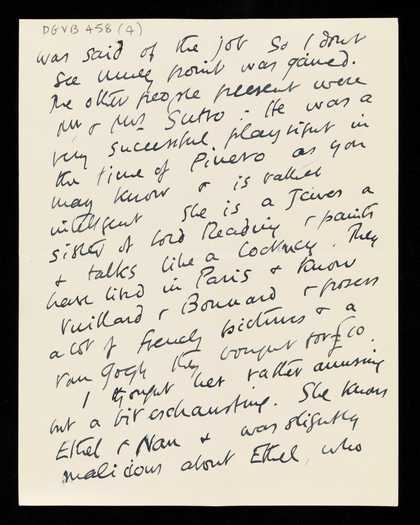 DGVB 458 (4)
was said of the job so I don't
see much point was gained.
The other people present were
Mr & Mrs Sutro. He was a
very successful playright in
the time of Pinero as you
may know & is rather
intelligent she is a Jewess a
sister of Lord Reading & paints
& talks like a Cockney. They
have lived in Paris & know
Vuillard & Bonnard & possess
a lot of french pictures & a
van Gogh they bought for £60.
I thought her rather amusing
but a bit exchausting. She knows
Ethel & Nan & was slightly
malicious about Ethel, who